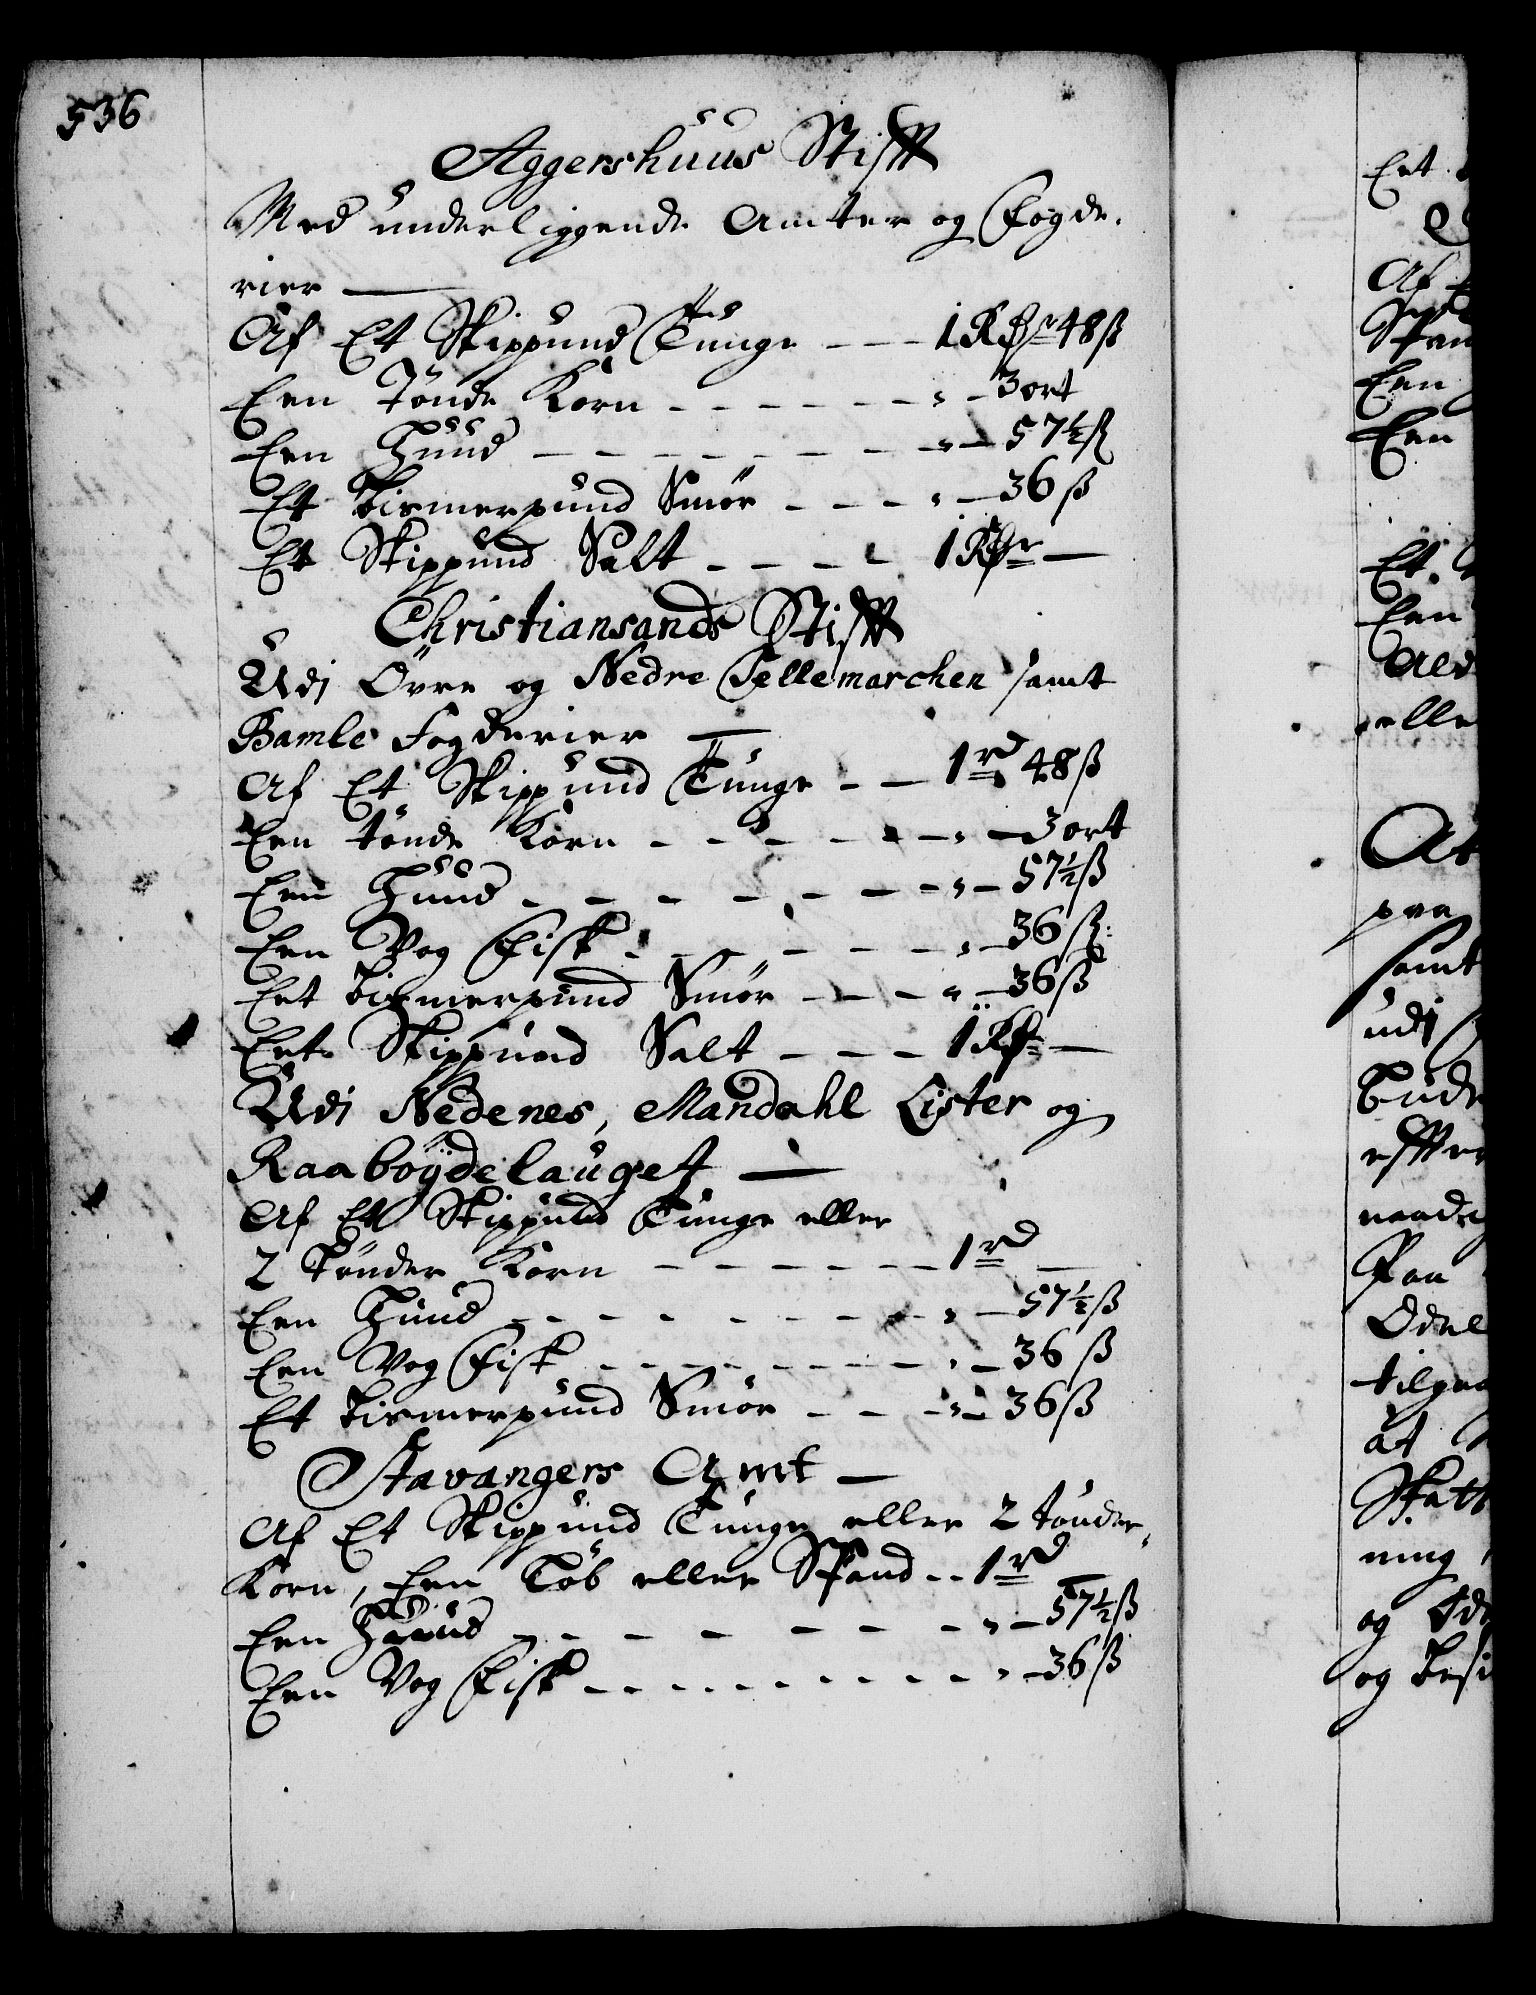 536
Aggershuus Stifft
Med underliggende Amter og Fogde-
rier
Af Et Skippund Tunge - - - 1 Rdr 48 ß
Een Tønde Korn - - - - - - " - 3 ort
Een Huud - - - - - - - - " - 57½ ß
Et Bismerpund Smør - - - " - 36 ß
Et Skippund Salt - - - - 1 Rdr -
Christiansands Stifft
Udj Øvre og Nedre Tellemarchen samt
Bamle Fogderier
Af Et Skippund Tunge - - 1 rd 48 ß
Een tønde Korn - - - - - - " - 3 ort
Een Huud - - - - - - - " - 57½ ß
Een Vog Fisk - - - - - - " - 36 ß
Eet bismerpund Smør - - - " - 36 ß
Eet Skippund Salt - - - 1 Rdr -
Udj Nedenes, Mandahl Lister og
Raabøydelauget
Af Et Skippund Tunge eller
2 Tønder Korn - - - - - - 1 rd -
Een Huud - - - - - - - - " - 57½ ß
Een Vog Fisk - - - - - - - " - 36 ß
Et bismerpund Smør - - - " - 36 ß
Stavangers Amt
Af Et Skippund Tunge eller 2 tønder
Korn, Een Løb eller Spand - - 1 rd -
Een Huud - - - - - - - " - 57½ ß
Een Vog Fisk - - - - - - - - " - 36 ß
Eet
Af
Een
Een
Et
Een
elle
At
samt
udj
Paa
Odel
at
ning
og
og